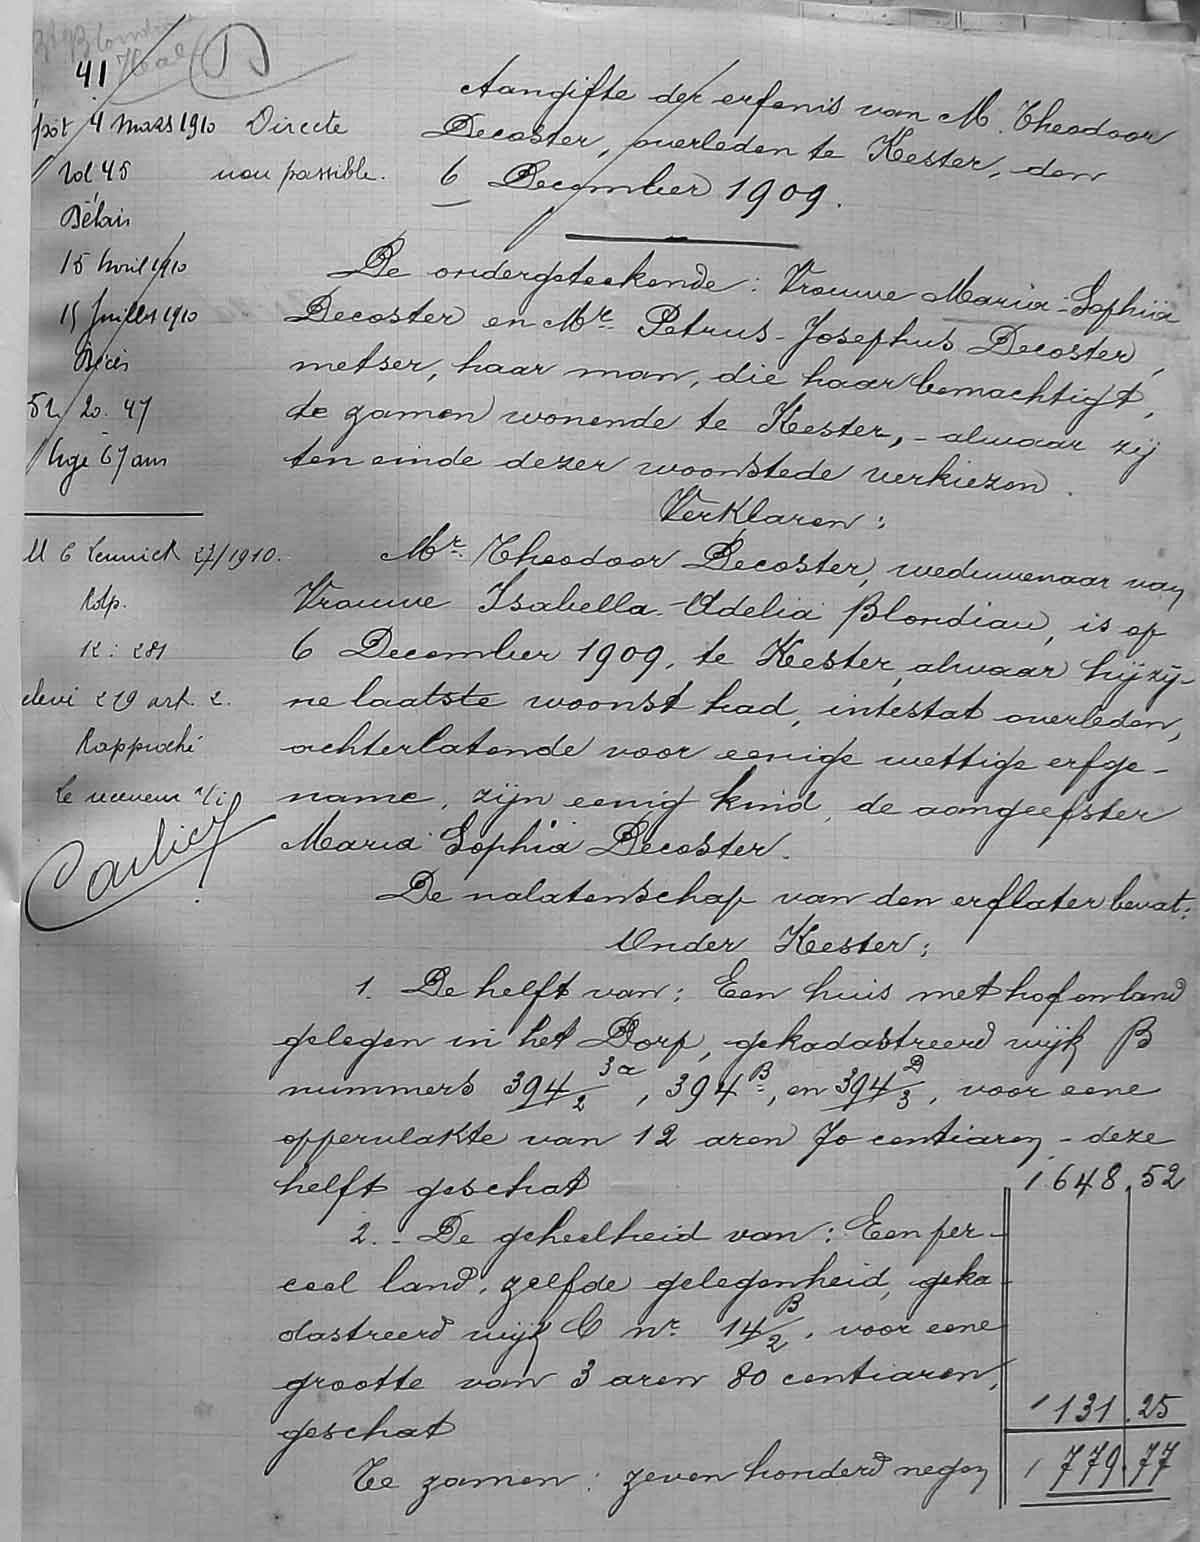 41
Aangifte der erfenis van M. Theodoor
Decoster, overleden te Kester, den
6 December 1909.
4 mars 1910 Directe
vol 45 non passible.
Délais
15 Avril 1910
15 Juillet 1910
Décès
20. 47
Age 67 ans
De ondergeteekende: Vrouwe Maria-Sophia
Decoster en Mr. Petrus-Josephus Decoster,
metser, haar man, die haar bemachtigt,
te zamen wonende te Kester, - alwaar zij
ten einde dezer woonstede verkiezen.
Verklaren:
Lennick 27/1910.
281
219 art. 2.
Rapproché
Le receveur
Mr. Theodoor Decoster, weduwenaar van
Vrouwe Isabella-Adelia Blondiau, is op
6 December 1909, te Kester, alwaar hij zij-
ne laatste woonst had, intestat overleden,
achterlatende voor eenige wettige erfge-
name, zijn eenig kind, de aangeefster
Maria Sophia Decoster.
De nalatenschap van den erflater bevat:
Onder Kester:
1. De helft van: Een huis met hof en land
gelegen in het Dorp, gekadastreerd wijk B
nummers 394/2 3a, 394 B, en 394/3 D, voor eene
oppervlakte van 12 aren 70 centiaren - deze
helft geschat 648,52
2.- De geheelheid van: Een per-
ceel land, zelfde gelegenheid, geka-
dastreerd wijk C nr. 14/2 B, voor eene
grootte van 3 aren 80 centiaren,
geschat 131.25
Te zamen: zeven honderd negen 779.77